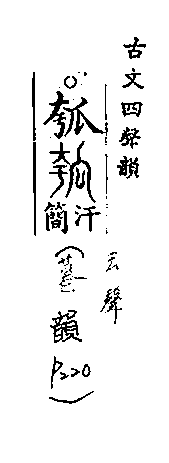 古文四聲韻
○瓠
汗簡
去聲
(暮韻 P.220)